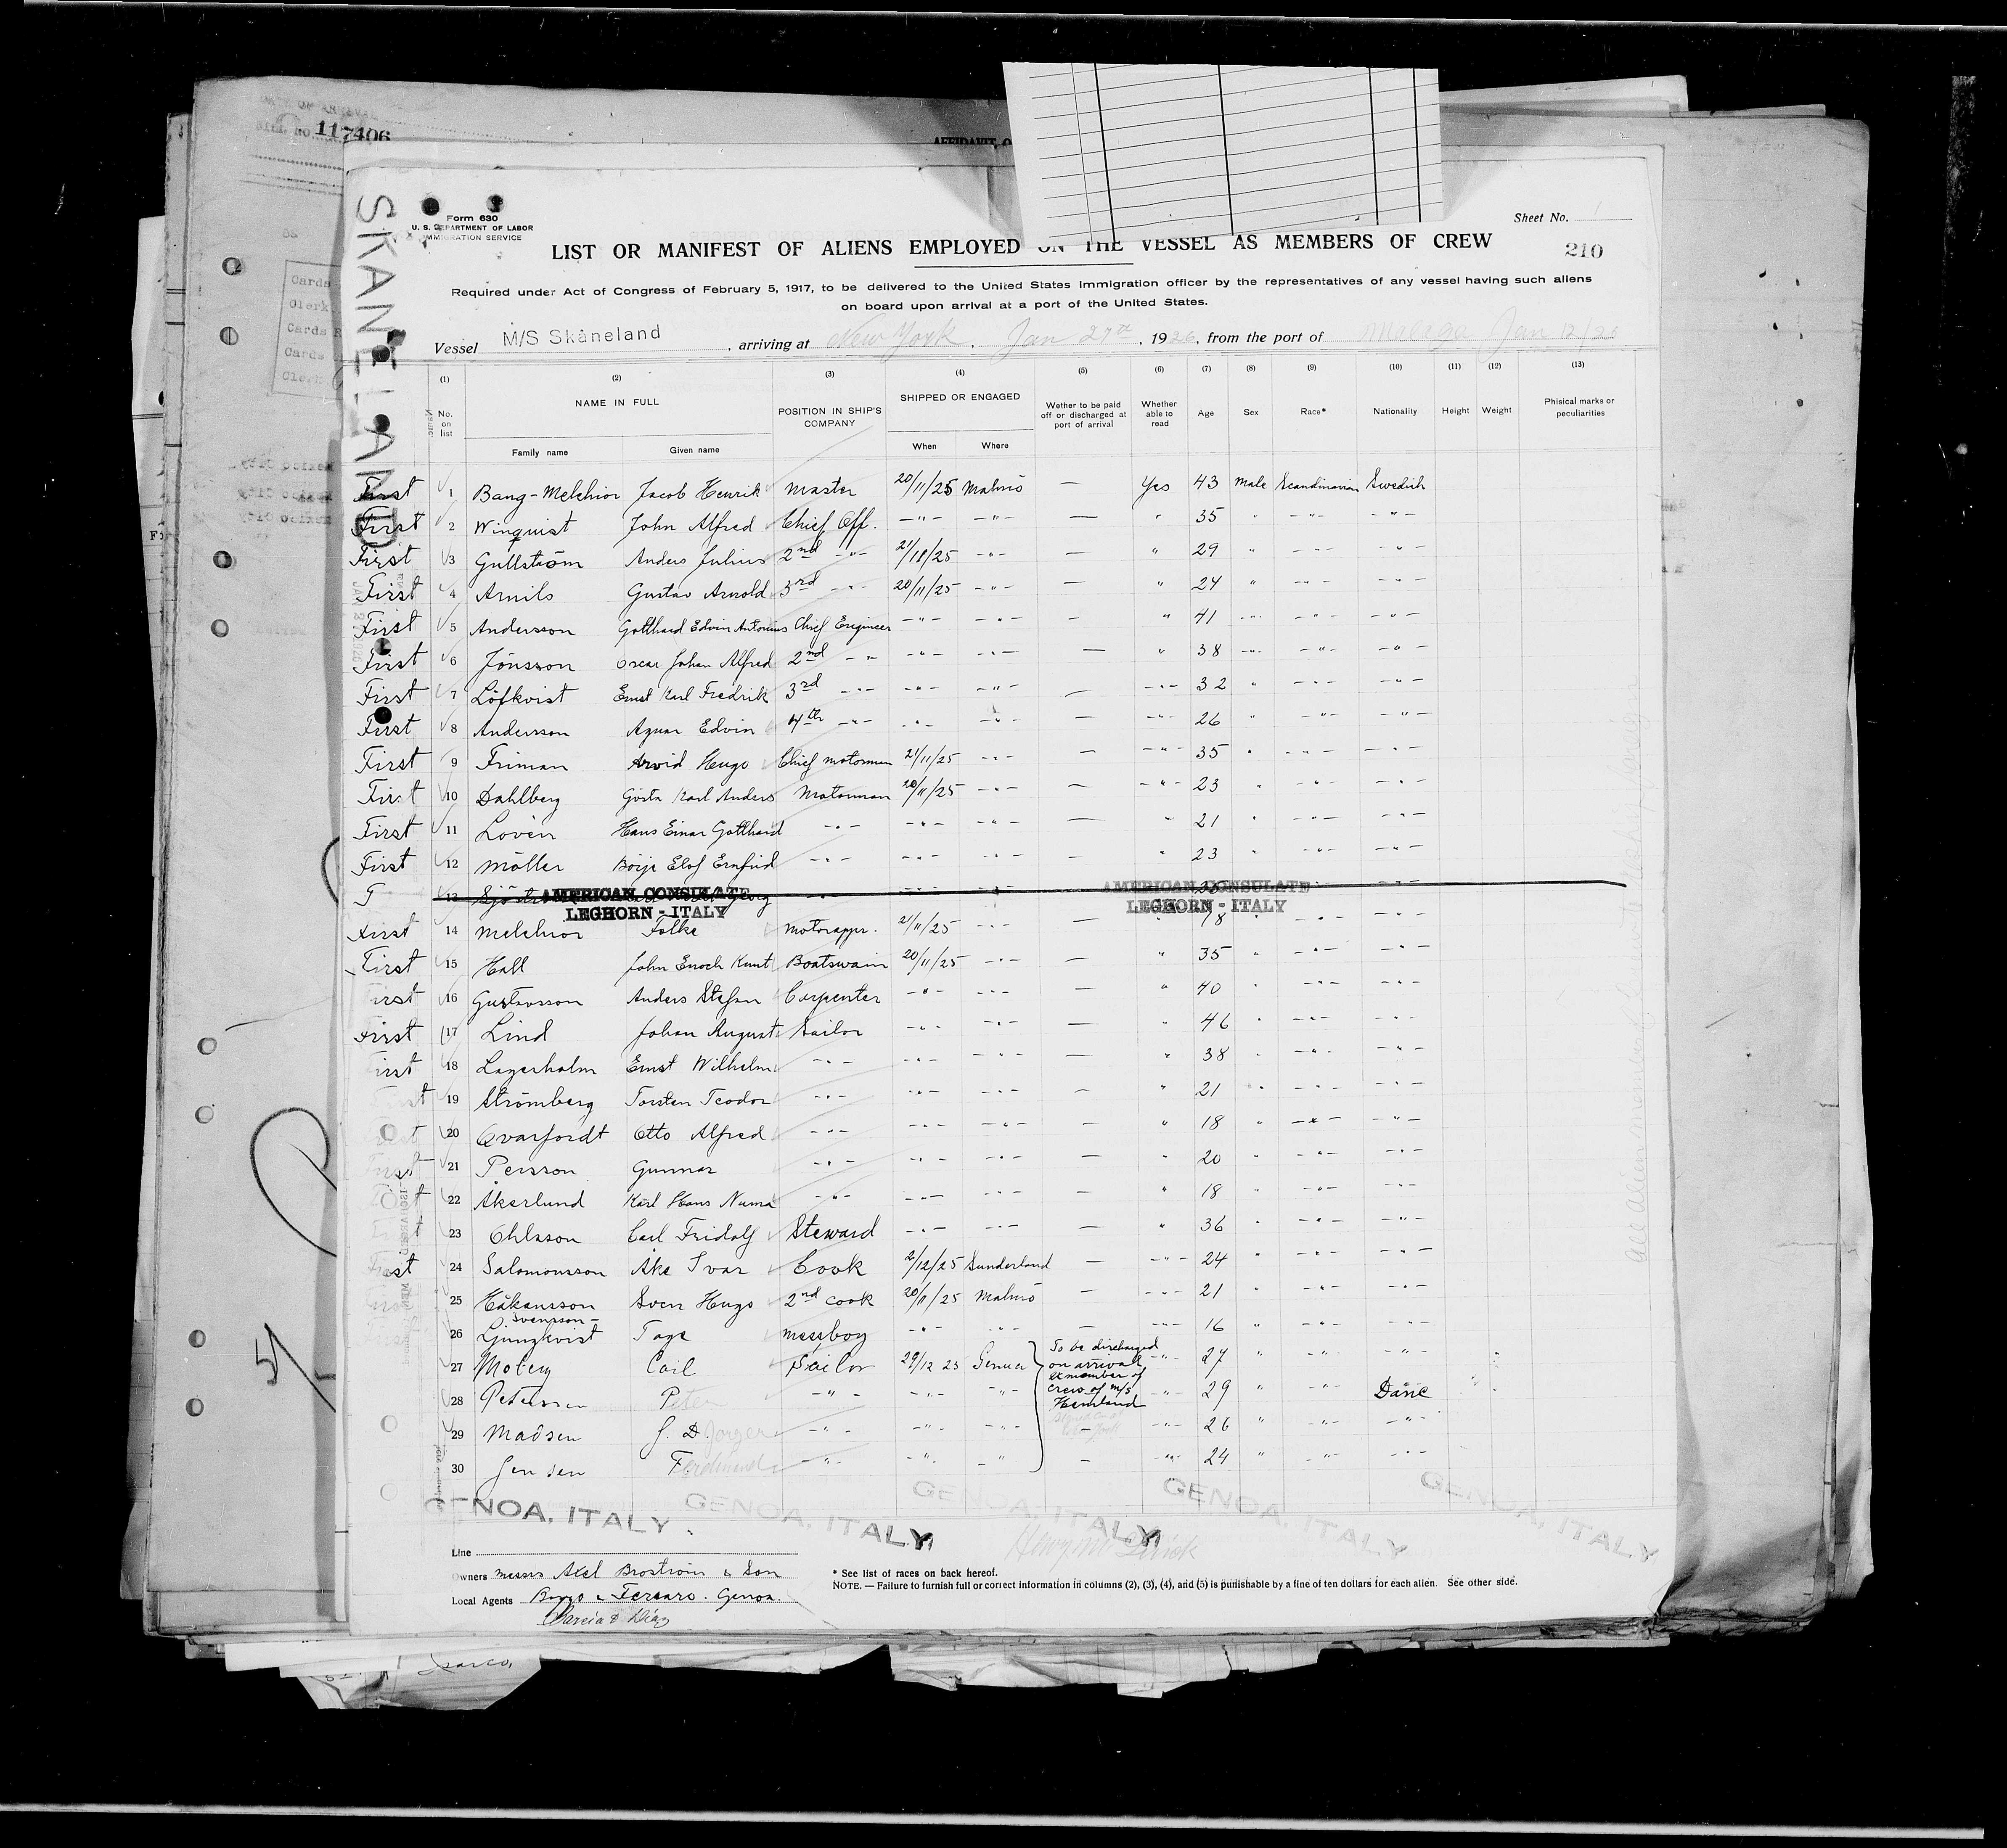 117406
SKANELAND
Form 630
U. S. DEPARTMENT OF LABOR
IMMIGRATION SERVICE
Sheet No. 1
LIST OR MANIFEST OF ALIENS EMPLOYED ON THE VESSEL AS MEMBERS OF CREW
210
Required under Act of Congress of February 5, 1917, to be delivered to the United States Immigration officer by the representatives of any vessel having such aliens
on board upon arrival at a port of the United States.
Vessel M/S Skåneland, arriving at New York, Jan 27th, 1926, from the port of Malaga Jan 12/26
(1) (2) (3) (4) (5) (6) (7) (8) (9) (10) (11) (12) (13)
No. on list NAME IN FULL POSITION IN SHIP'S COMPANY SHIPPED OR ENGAGED Wether to be paid off or discharged at port of arrival Whether able to read Age Sex Race* Nationality Height Weight Phisical marks or peculiarities
Family name Given name When Where
First 1 Bang-Melchior Jacob Henrik Master 20/11/25 Malmö — Yes 43 Male Scandinavian Swedish
First 2 Winquist John Alfred Chief Off. -"- -"- — " 35 " -"- -"-
First 3 Gullström Anders Julius 2nd -"- 21/11/25 -"- — " 29 " -"- -"-
First 4 Arnils Gustav Arnold 3rd -"- 20/11/25 -"- — " 24 " -"- -"-
First 5 Andersson Gotthard Edvin Antonius Chief Engineer -"- -"- — " 41 -"- -"- -"-
First 6 Jönsson Oscar Johan Alfred 2nd -"- -"- -"- — " 38 -"- -"- -"-
First 7 Löfkvist Ernst Karl Fredrik 3rd -"- -"- -"- — -"- 32 " -"- -"-
First 8 Andersson Agnar Edvin 4th -"- -"- -"- — -"- 26 " -"- -"-
First 9 Friman Arvid Hugo Chief motorman 21/11/25 -"- — -"- 35 " -"- -"-
First 10 Dahlberg Gösta Karl Anders Motorman 20/11/25 -"- — -"- 23 " -"- -"-
First 11 Lovén Hans Einar Gotthard -"- -"- -"- — " 21 " -"- -"-
First 12 Möller Börje Elof Ernfrid -"- -"- -"- — " 23 " -"- -"-
13 Georg
AMERICAN CONSULATE
LEGHORN - ITALY
AMERICAN CONSULATE
LEGHORN - ITALY
First 14 Melchior Folke Motorappr. 21/11/25 -"- — " 18 -"- -"-
First 15 Hall John Enoch Knut Boatswain 20/11/25 -"- — " 35 " -"- -"-
First 16 Gustavsson Anders Stefan Carpenter -"- -"- — " 40 " -"- -"-
First 17 Lind Johan August Sailor -"- -"- — " 46 " -"- -"-
First 18 Lagerholm Ernst Wilhelm -"- -"- -"- — " 38 " -"- -"-
First 19 Strömberg Torsten Teodor -"- -"- -"- — " 21 " -"- -"-
20 Qvarfordt Otto Alfred -"- -"- -"- — " 18 " -"- -"-
First 21 Persson Gunnar -"- -"- -"- — " 20 " -"- -"-
22 Åkerlund Karl Hans Numa -"- -"- -"- " 18 " -"- -"-
23 Ohlsson Carl Fridolf Steward -"- -"- — " 36 " -"- -"-
First 24 Salomonsson Åke Ivar Cook 2/12/25 Sunderland — -"- 24 " -"- -"-
25 Håkansson Sven Hugo 2nd cook 20/11/25 Malmö — -"- 21 " -"- -"-
Svensson-
26 Ljungkvist Tage messboy -"- -"- — -"- 16 " -"- -"-
27 Moberg Carl Sailor 29/12 25 Genua To be discharged on arrival exmember of crew of m/s Hemland -"- 27 " -"- -"-
28 Petersen Peter -"- -"- -"- -"- 29 " -"- Dane
29 Madsen J. D. Jorgen -"- -"- -"- — -"- 26 " -"- -"-
30 Jensen Ferdinand -"- -"- -"- — -"- 24 " -"- -"-
GENOA, ITALY. GENOA, ITALY GENOA, ITALY GENOA, ITALY GENOA, ITALY
Line
Owners Messrs Axel Broström & Son
* See list of races on back hereof.
NOTE. — Failure to furnish full or correct information in columns (2), (3), (4), and (5) is punishable by a fine of ten dollars for each alien. See other side.
Local Agents Ferraro. Genoa.
Garcia & Diaz